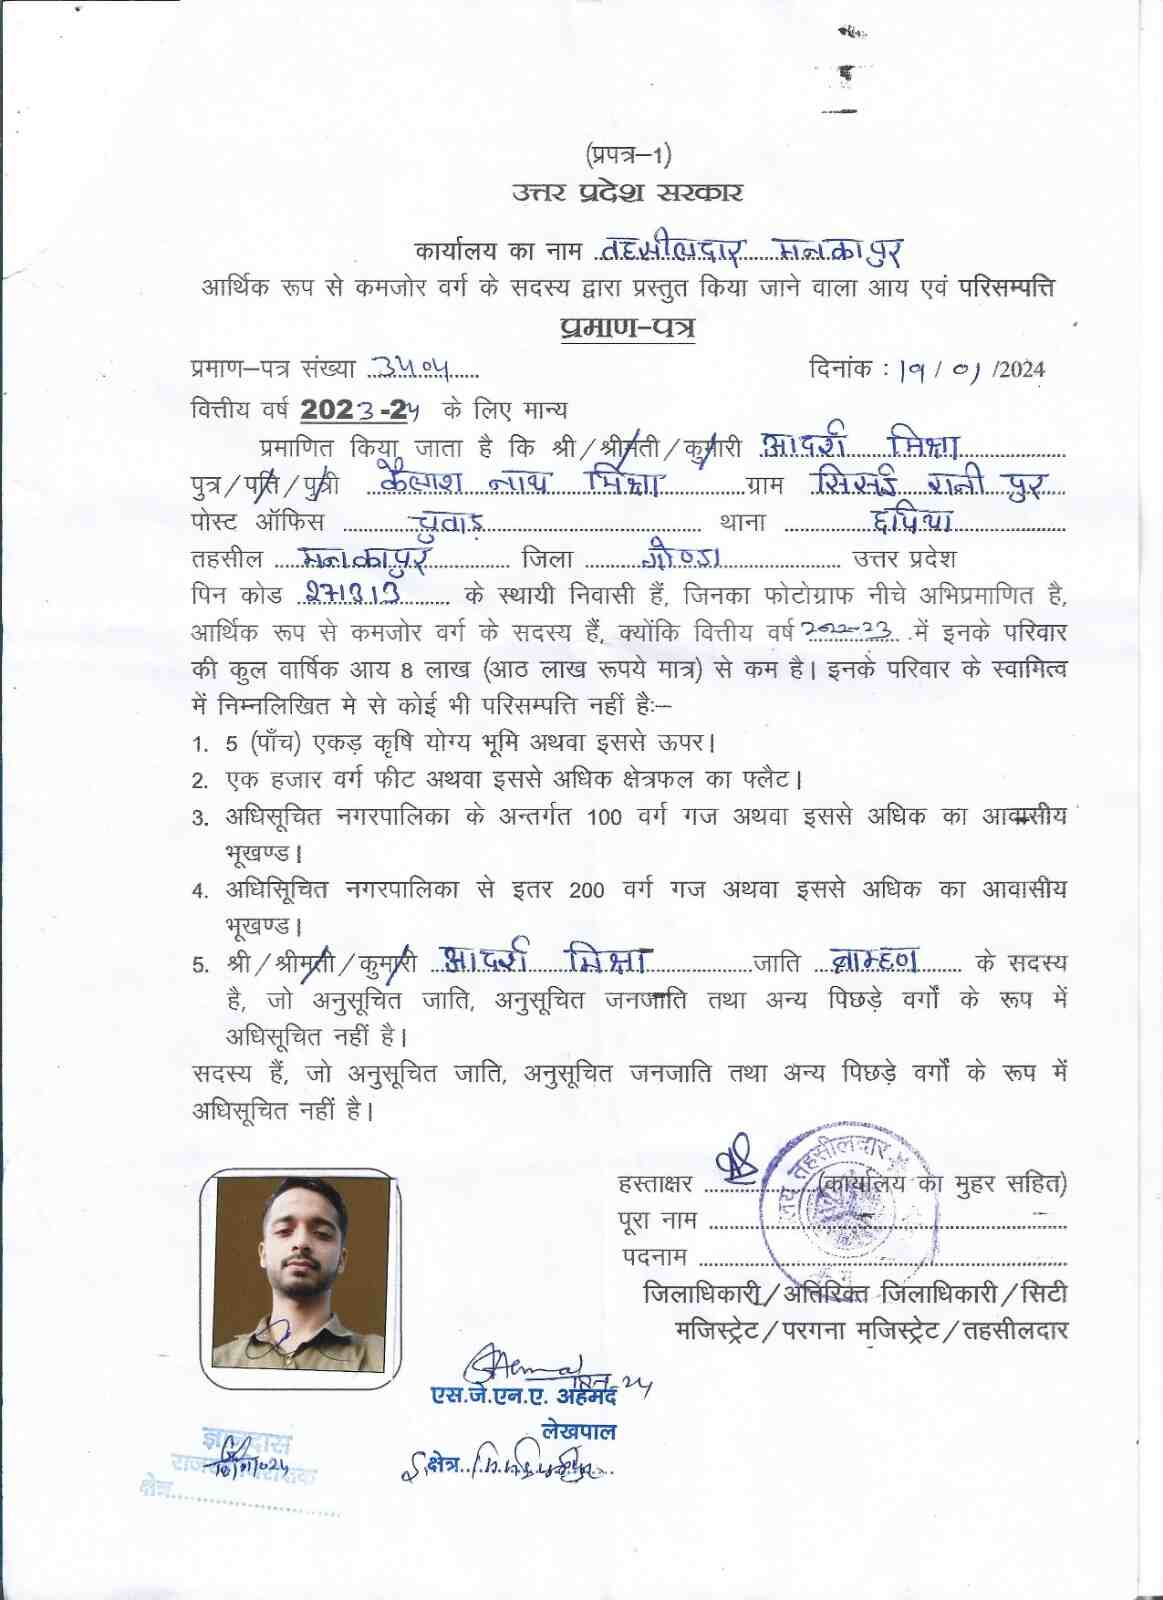 (प्रपत्र–1)
उत्तर प्रदेश सरकार
कार्यालय का नाम तहसीलदार मनकापुर
आर्थिक रूप से कमजोर वर्ग के सदस्य द्वारा प्रस्तुत किया जाने वाला आय एवं परिसम्पत्ति
प्रमाण-पत्र
प्रमाण–पत्र संख्या 3404 दिनांक : 19 / 01 /2024
वित्तीय वर्ष 2023-24 के लिए मान्य
प्रमाणित किया जाता है कि श्री/श्रीमती/कुमारी आदर्श मिश्रा
पुत्र/पति/पुत्री कैलाश नाथ मिश्रा ग्राम सिसई रानी पुर
पोस्ट ऑफिस चुवाड़ थाना छपिया
तहसील मनकापुर जिला गोण्डा उत्तर प्रदेश
पिन कोड 271313 के स्थायी निवासी हैं, जिनका फोटोग्राफ नीचे अभिप्रमाणित है,
आर्थिक रूप से कमजोर वर्ग के सदस्य हैं, क्योंकि वित्तीय वर्ष 2022-23 में इनके परिवार
की कुल वार्षिक आय 8 लाख (आठ लाख रूपये मात्र) से कम है। इनके परिवार के स्वामित्व
में निम्नलिखित मे से कोई भी परिसम्पत्ति नहीं हैः–
1. 5 (पाँच) एकड़ कृषि योग्य भूमि अथवा इससे ऊपर।
2. एक हजार वर्ग फीट अथवा इससे अधिक क्षेत्रफल का फ्लैट।
3. अधिसूचित नगरपालिका के अन्तर्गत 100 वर्ग गज अथवा इससे अधिक का आवासीय
भूखण्ड।
4. अधिसूिचित नगरपालिका से इतर 200 वर्ग गज अथवा इससे अधिक का आवासीय
भूखण्ड।
5. श्री/श्रीमती/कुमारी आदर्श मिश्रा जाति ब्राम्हण के सदस्य
है, जो अनुसूचित जाति, अनुसूचित जनजाति तथा अन्य पिछड़े वर्गों के रूप में
अधिसूचित नहीं है।
सदस्य हैं, जो अनुसूचित जाति, अनुसूचित जनजाति तथा अन्य पिछड़े वर्गों के रूप में
अधिसूचित नहीं है।
हस्ताक्षर (कार्यालय का मुहर सहित)
पूरा नाम
पदनाम
जिलाधिकारी/अतिरिक्त जिलाधिकारी/सिटी
मजिस्ट्रेट/परगना मजिस्ट्रेट/तहसीलदार
तहसीलदार
एस.जे.एन.ए. अहमद
लेखपाल
क्षेत्र
क्षेत्र